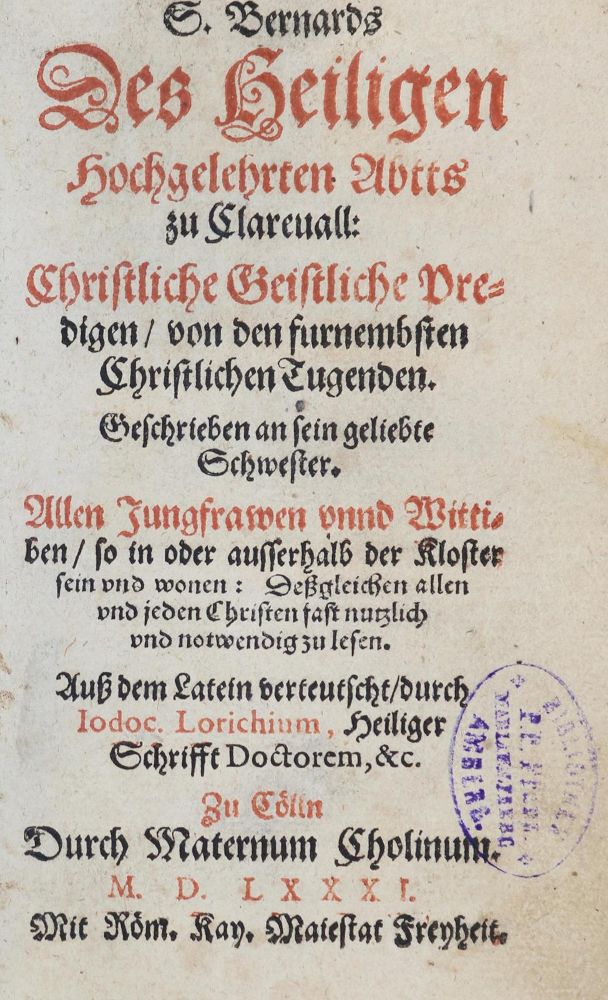 S. Bernards
Des Heiligen
Hochgelehrten Abtts
zu Clareuall:
Christliche Geistliche Pre-
digen / von den furnembsten
Christlichen Tugenden.
Geschrieben an sein geliebte
Schwester.
Allen Jungfrawen vnnd Witti-
ben / so in oder ausserhalb der Kloster
sein vnd wonen : Deßgleichen allen
vnd jeden Christen fast nutzlich
vnd notwendig zu lesen.
Auß dem Latein verteutscht/durch
Iodoc. Lorichium, Heiliger
Schrifft Doctorem, &c.
Zu Cölln
Durch Maternum Cholinum.
M. D. LXXXI.
Mit Röm. Kay. Maiestat Freyheit.
AMBERG.